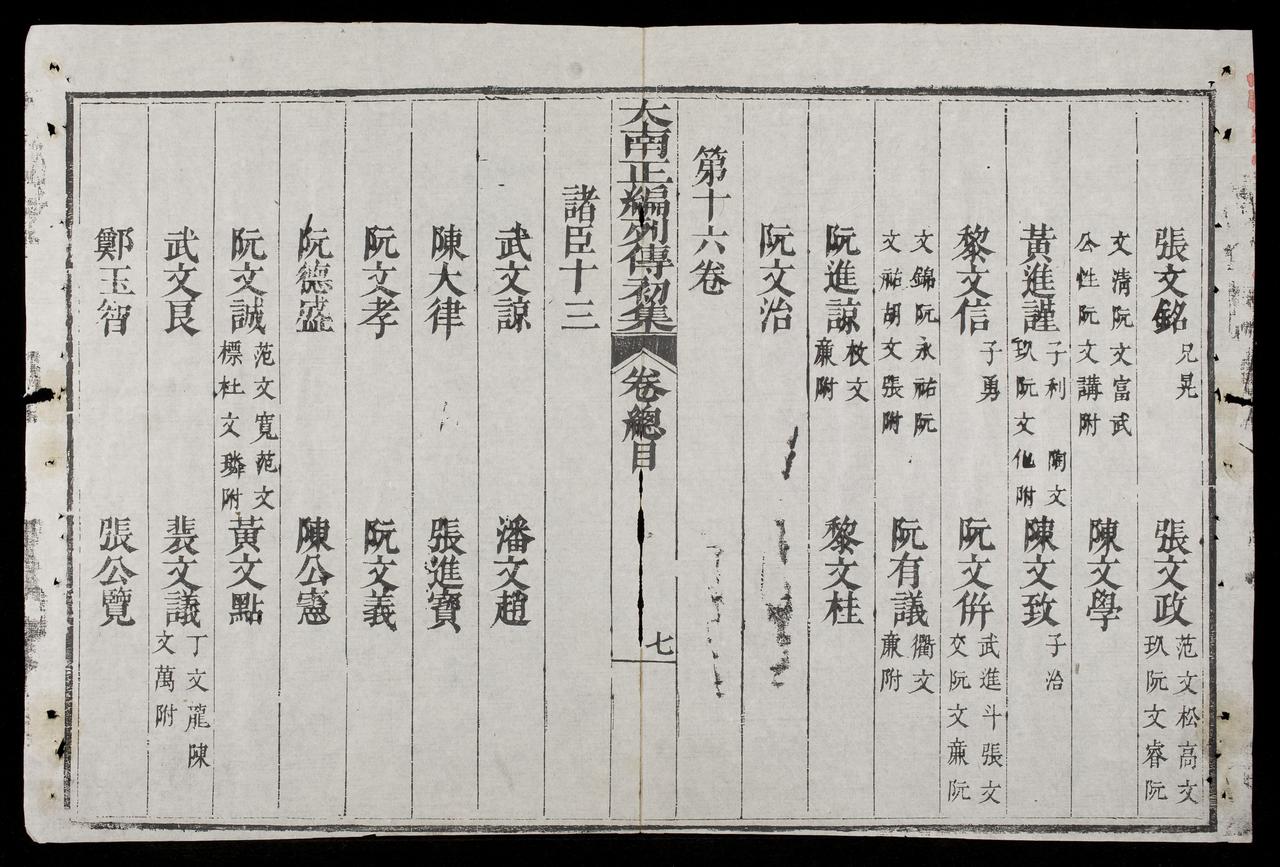 張文銘 兄晃 張文政 范文松高文玖阮文睿阮
文清阮文富武公性阮文講附 陳文學
黃進謹 子利 陶文玖阮文化附 陳文致 子治
黎文信 子勇 阮文倂 武進斗張文交阮文亷阮
文錦阮永祐阮文祐胡文張附 阮有議 衢文亷附
阮進諒 枚文亷附 黎文桂
阮文治
第十六卷
大南正編列傳初集 卷總目 七
諸臣十三
武文諒 潘文趙
陳大律 張進寶
阮文孝 阮文義
阮德盛 陳公憲
阮文誠 范文寬范文標杜文璘附 黃文點
武文艮 裴文議 丁文龍陳文萬附
鄭玉智 張公覽